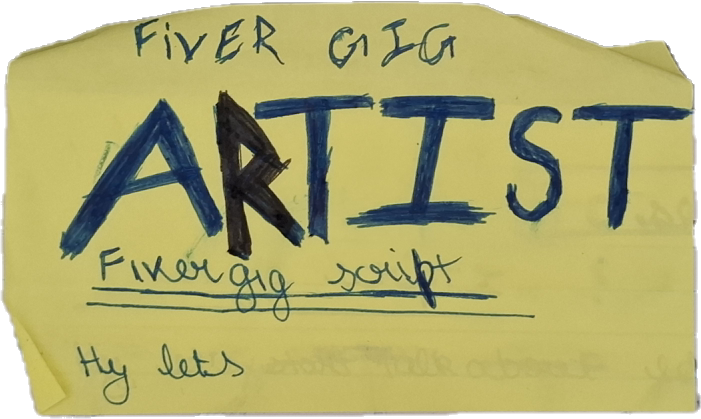 FiVER GIG
ARTIST
Fiver gig script
Hy lets